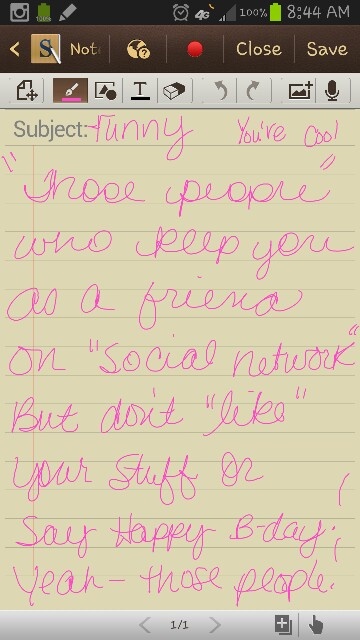 4G 100% 8:44 AM
S Not Close Save
T
Subject: Funny You're Cool
"Those people"
who keep you
as a friend
on "social network"
But don't "like"
your stuff or
Say Happy B-day;
Yeah - those people!
1/1